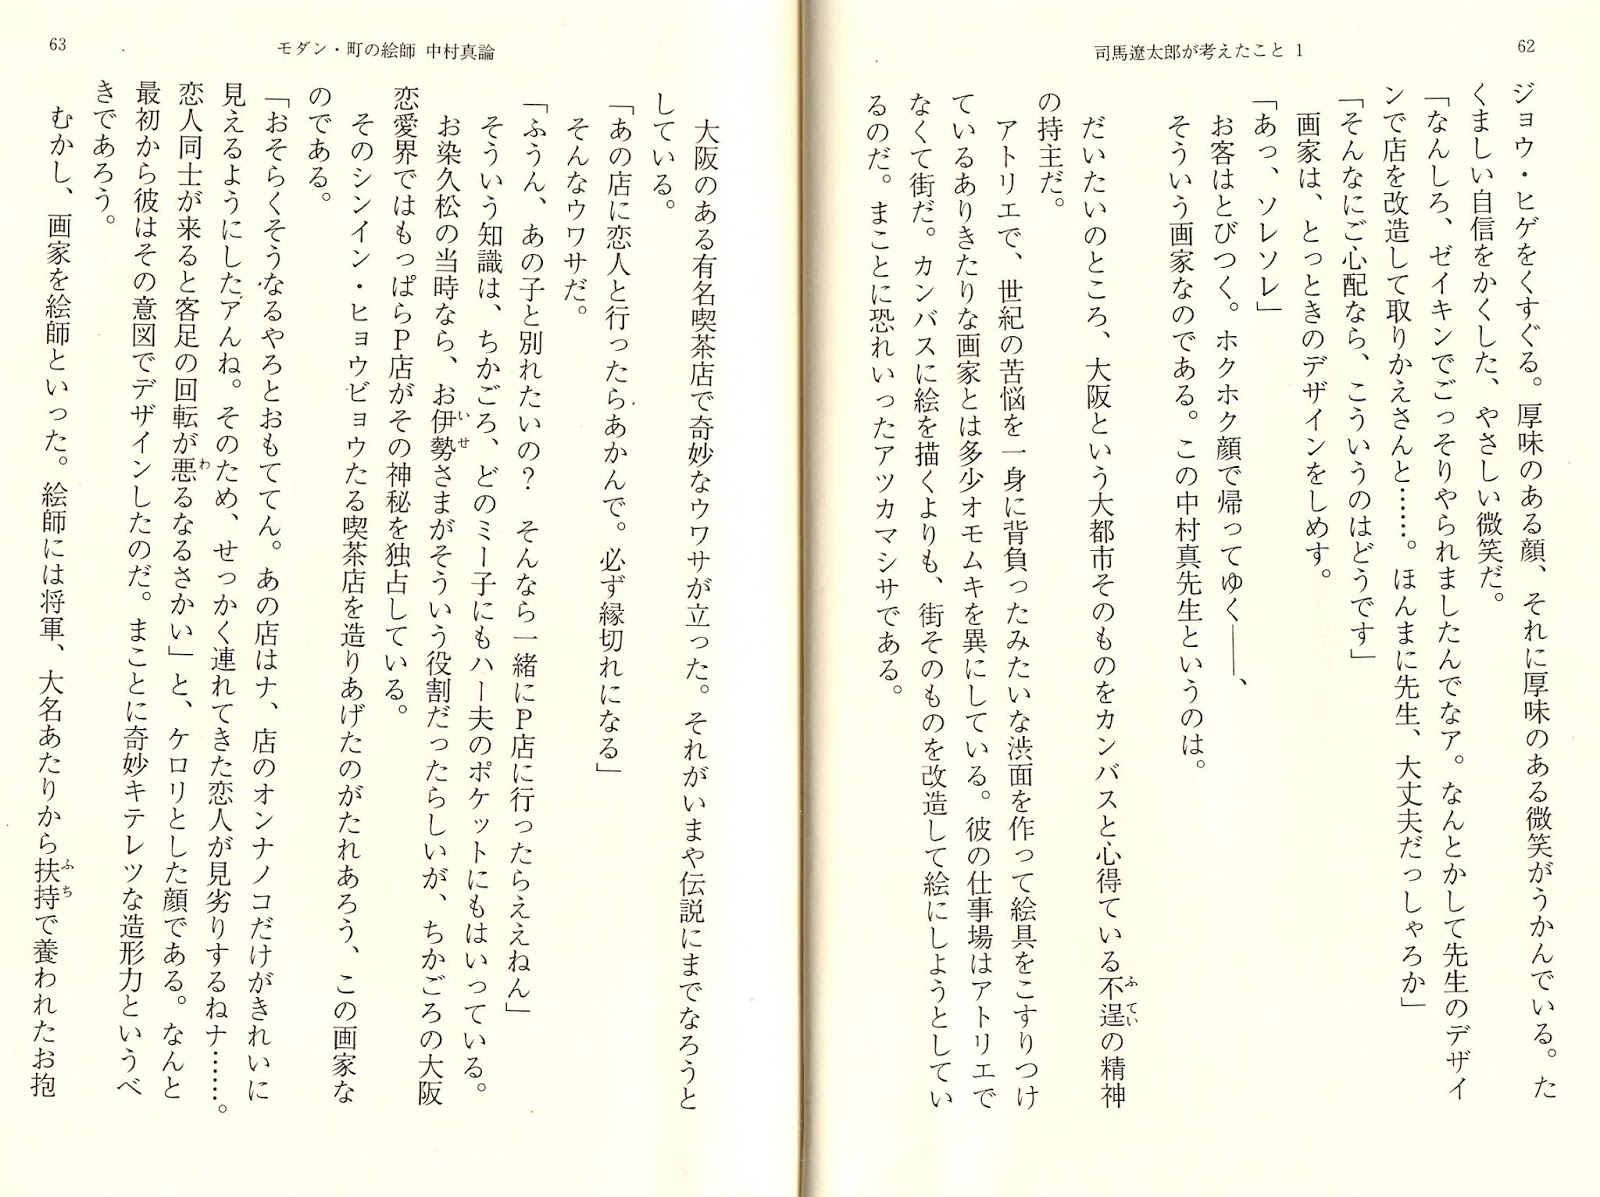 62
司馬遼太郎が考えたこと 1
ジョウ・ヒゲをくすぐる。厚味のある顔、それに厚味のある微笑がうかんでいる。た
くましい自信をかくした、やさしい微笑だ。
「なんしろ、ゼイキンでごっそりやられましたんでなァ。なんとかして先生のデザイ
ンで店を改造して取りかえさんと……。ほんまに先生、大丈夫だっしゃろか」
「そんなにご心配なら、こういうのはどうです」
画家は、とっときのデザインをしめす。
「あっ、ソレソレ」
お客はとびつく。ホクホク顔で帰ってゆく――、
そういう画家なのである。この中村真先生というのは。
だいたいのところ、大阪という大都市そのものをカンバスと心得ている不逞の精神
の持主だ。
アトリエで、世紀の苦悩を一身に背負ったみたいな渋面を作って絵具をこすりつけ
ているありきたりな画家とは多少オモムキを異にしている。彼の仕事場はアトリエで
なくて街だ。カンバスに絵を描くよりも、街そのものを改造して絵にしようとしてい
るのだ。まことに恐れいったアツカマシサである。
63
モダン・町の絵師 中村真論
大阪のある有名喫茶店で奇妙なウワサが立った。それがいまや伝説にまでなろうと
している。
「あの店に恋人と行ったらあかんで。必ず縁切れになる」
そんなウワサだ。
「ふうん、あの子と別れたいの? そんなら一緒にP店に行ったらええねん」
そういう知識は、ちかごろ、どのミー子にもハー夫のポケットにもはいっている。
お染久松の当時なら、お伊勢さまがそういう役割だったらしいが、ちかごろの大阪
恋愛界ではもっぱらP店がその神秘を独占している。
そのシンイン・ヒョウビョウたる喫茶店を造りあげたのがたれあろう、この画家な
のである。
「おそらくそうなるやろとおもててん。あの店はナ、店のオンナノコだけがきれいに
見えるようにしたアんね。そのため、せっかく連れてきた恋人が見劣りするねナ……。
恋人同士が来ると客足の回転が悪るなるさかい」と、ケロリとした顔である。なんと
最初から彼はその意図でデザインしたのだ。まことに奇妙キテレツな造形力というべ
きであろう。
むかし、画家を絵師といった。絵師には将軍、大名あたりから扶持で養われたお抱